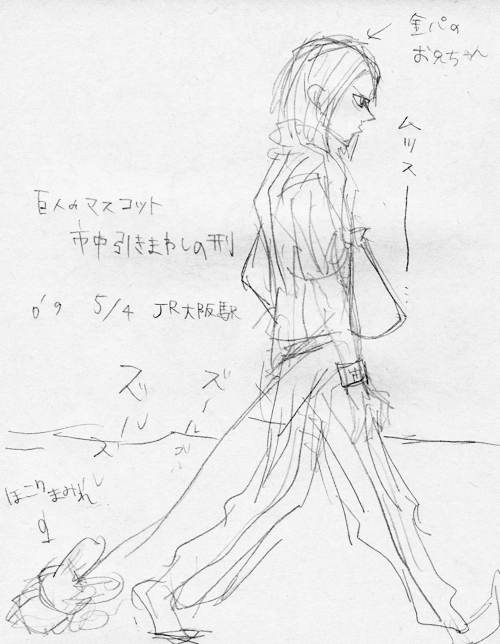 金パの
お兄ちゃん
ムッスー
巨人のマスコット
市中引きまわしの刑
0'9 5/4 JR大阪駅
ズール
ズールズ
ほこりまみれ